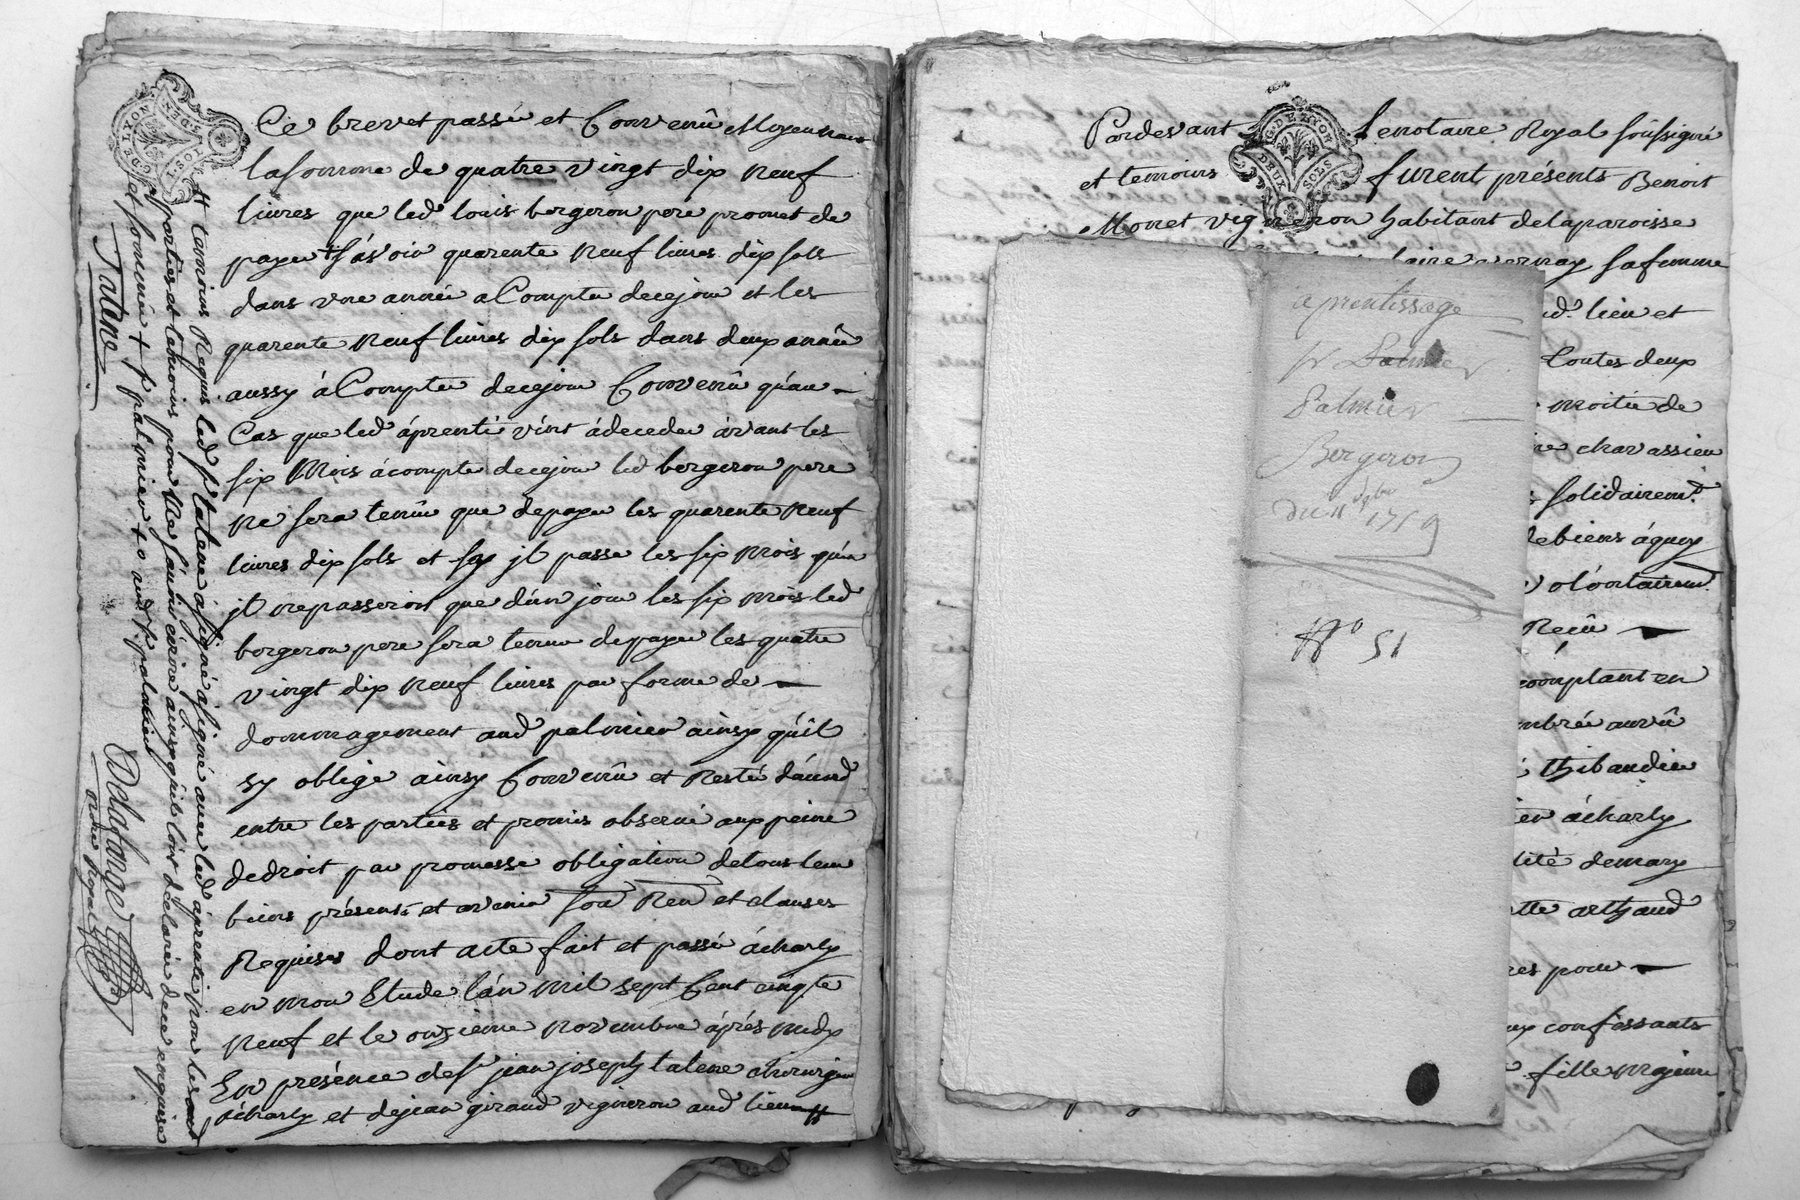 G. DE LYON
DEUX SOLS
Ce brevet passé et Convenû Moyennant
la somme de quatre vingt dix neuf
livres que led louis bergeron pere promet de
payer Sávoir quarente neuf livres dix sols
dans une année a Compter de ce jour et les
quarente neuf livres dix sols dans deux année
aussy á Compter de ce jour Convenû qu'au
Cas que led áprenti vint ádeceder ávant les
six Mois ácompter de ce jour led bergeron pere
ne sera tenû que de payer les quarente neuf
livres dix sols et sy jl passe les six mois qu'en
jl ne passeriot que d'un jour les six mois led
bergeron pere sera tenu de payer les quatre
vingt dix neuf livres par forme de
dommagement aud palmier ainsy qu'il
sy oblige ainsy Convenû et Resté dácord
entre les parties et promis observé aux peine
de droit par promesse obligation de tous leur
biens présents et avenir soû Ren et clauses
Requises dont acte fait et passé ácharly
en mon Etude l'án mil sept Cent cinqte
neuf et le onzieme novembre áprés midy
En presénce de sr jean joseph talene chirurgien
ácharly et de jean giraud vigneron aud lieu
et temoins Requis led sr talene á signé á signé avec led áprenti non les aud
parties et temoins pour ne sávoir écrire ainsy qu'ils lont declaré de ce enquis
et sommé + sr palmier + o aud sr palmier
Talene
Delafange
notre Royal
Pardevant Le notaire Royal soûssigné
et temoins furent présents Benoit
Monet vigneron habitant de la paroisse
laire avernay sa femme
ud. lieu et
toutes deux
moitié de
charassieu
solidairemt
de biens áquoy
volontairemt
Reçû
comptant en
nombrée auvû
thibaudier
ácharly
lité demary
arthaud
res pour
confessants
fille majeure
aprentissage
Palmier
Palmier
Bergeron
du 11 9bre 1759
No 51